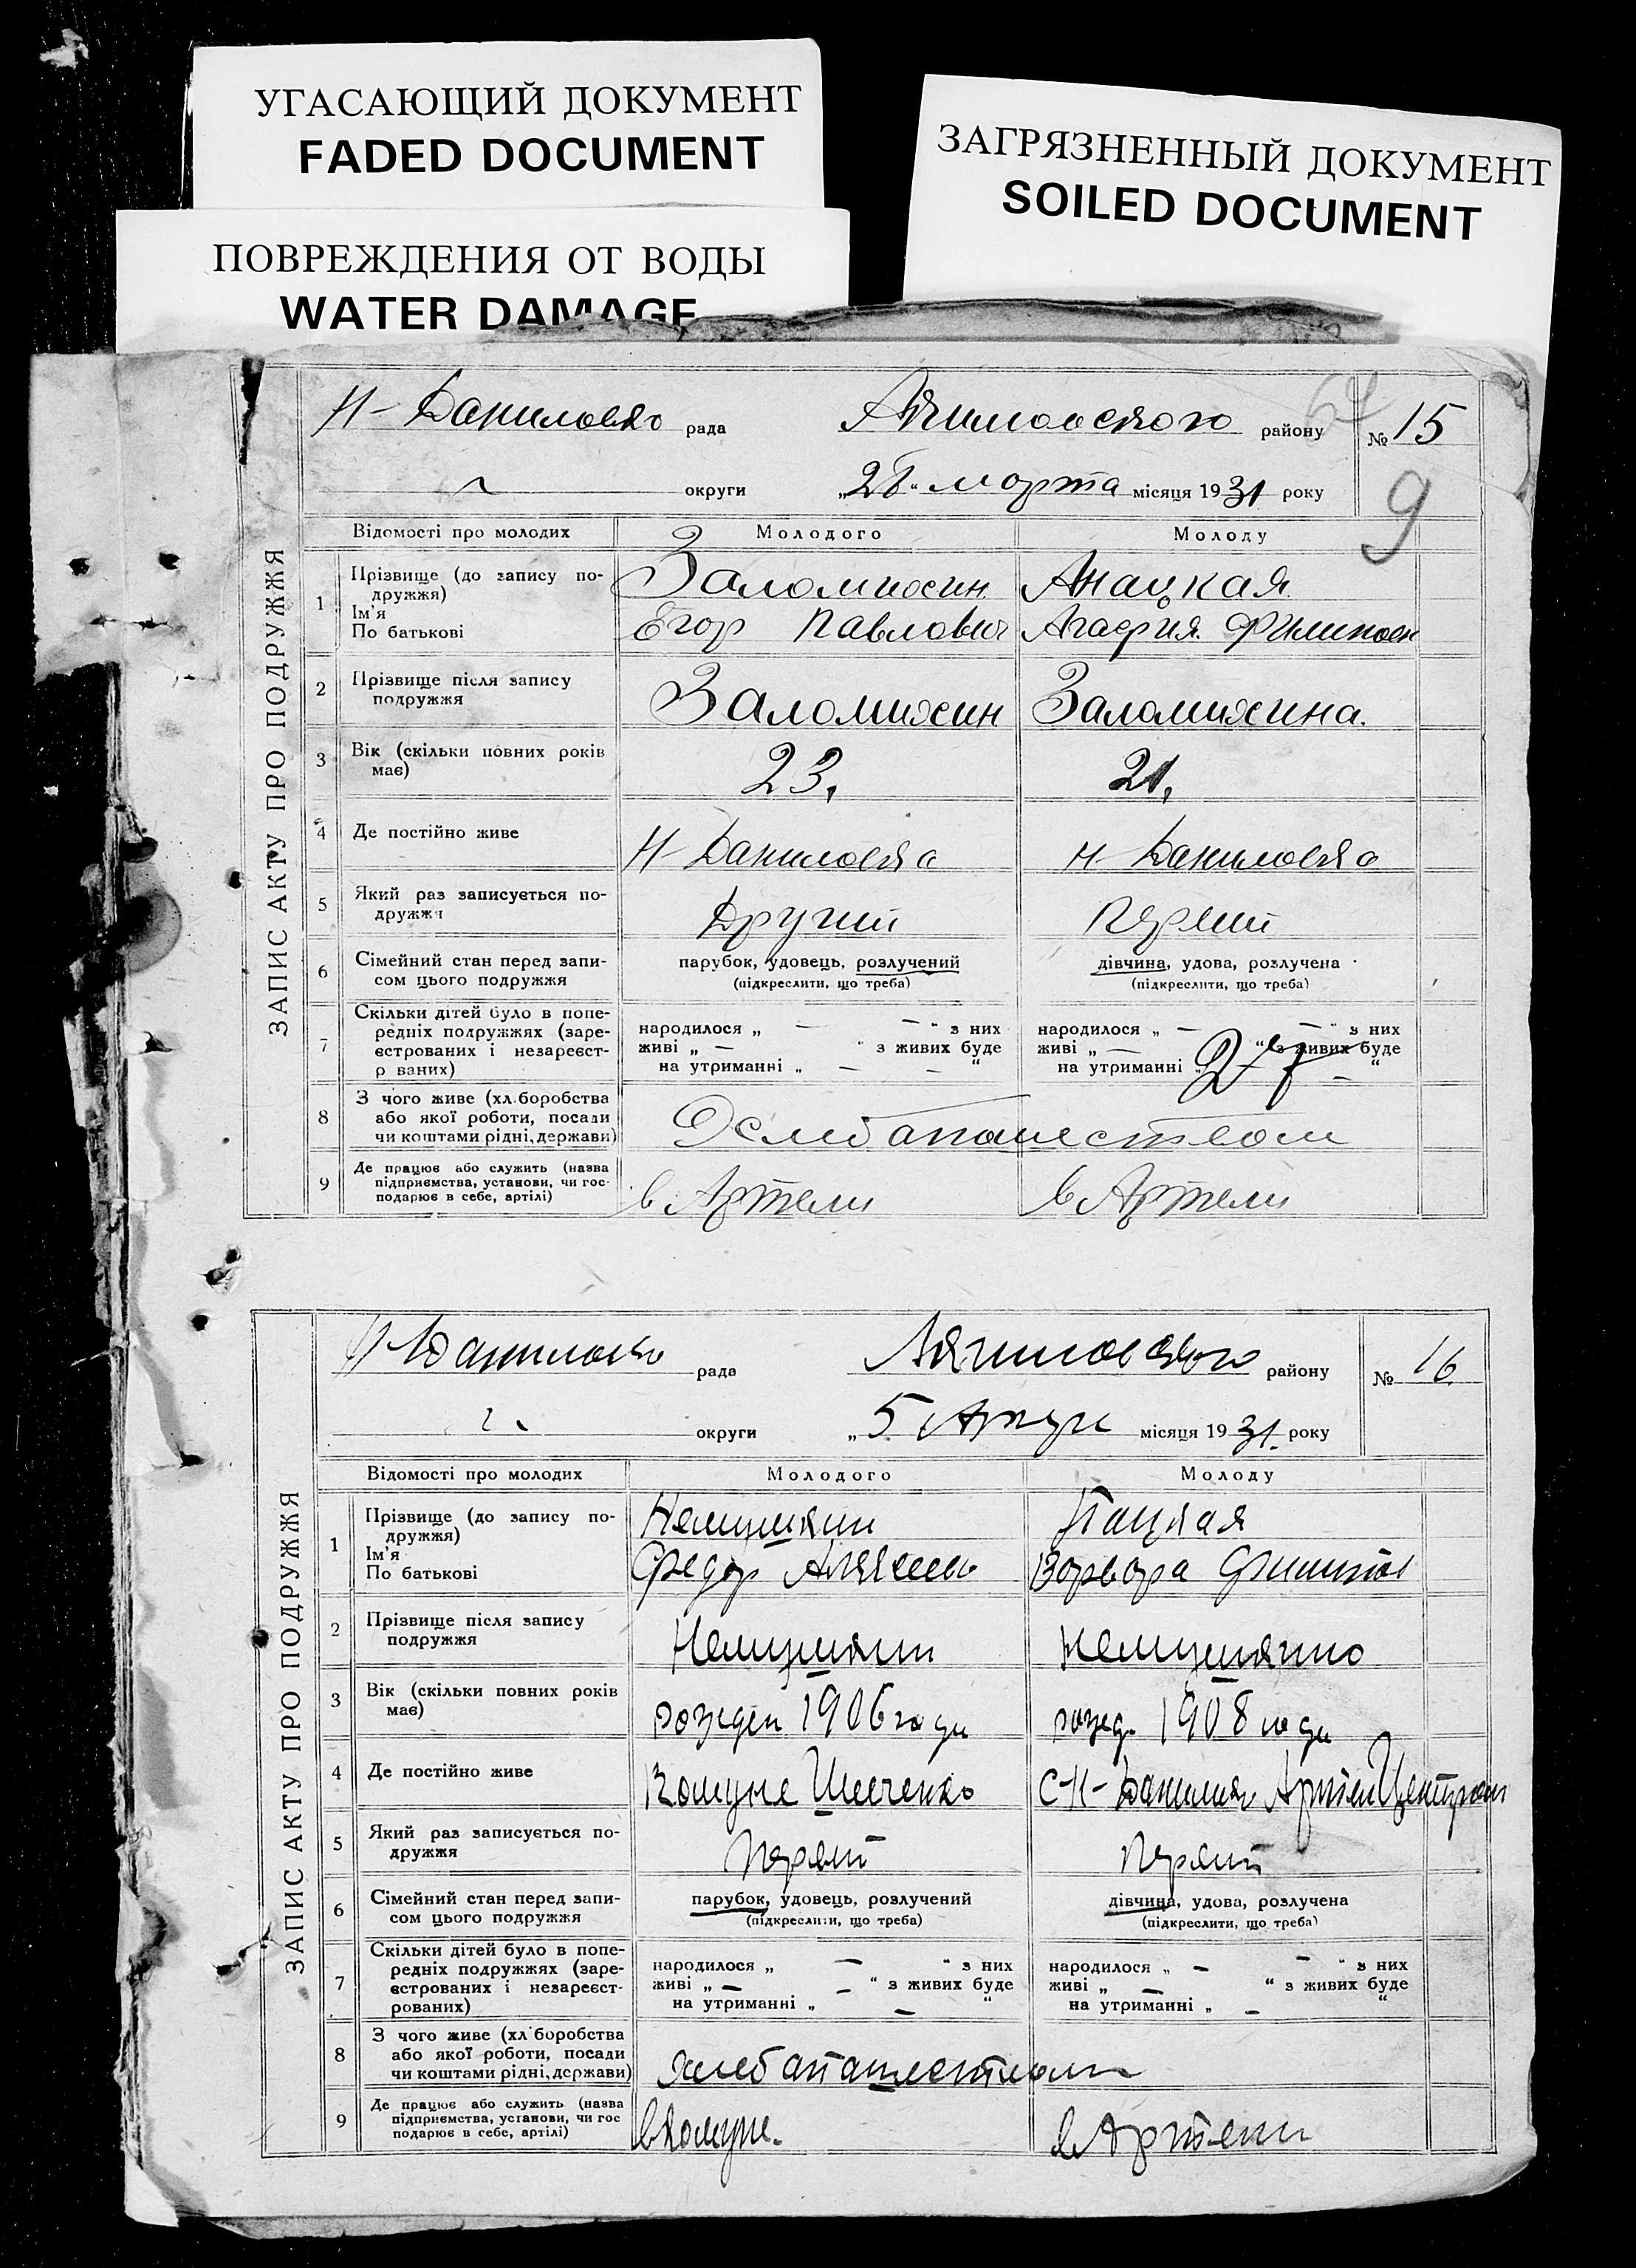 УГАСАЮЩИЙ ДОКУМЕНТ
FADED DOCUMENT
ЗАГРЯЗНЕННЫЙ ДОКУМЕНТ
SOILED DOCUMENT
ПОВРЕЖДЕНИЯ ОТ ВОДЫ
WATER DAMAGE
ЗАПИС АКТУ ПРО ПОДРУЖЖЯ
Н-Даниловко рада Акимовского району № 15
округи „28“ марта місяця 1931 року
9
Відомості про молодих Молодого Молоду
1 Прізвище (до запису подружжя) Заломихин Анацкая
Ім'я
По батькові Егор Павлович Агафия Филипов
2 Прізвище після запису подружжя Заломихин Заломихина
3 Вік (скільки повних років має) 23, 21,
4 Де постійно живе Н-Даниловка Н-Даниловка
5 Який раз записується подружжя Другий Первий
6 Сімейний стан перед записом цього подружжя парубок, удовець, розлучений дівчина, удова, розлучена
(підкреслити, що треба) (підкреслити, що треба)
7 Скільки дітей було в попередніх подружжях (зареєстрованих і незареєстрованих) народилося „ — — “ з них народилося „ — — “ з них
живі „ — “ з живих буде живі „ — “ з живих буде
на утриманні „ — — “ на утриманні „ — “
8 З чого живе (хліборобства або якої роботи, посади чи коштами рідні, держави) Хлебапашеством
9 Де працює або служить (назва підприємства, установи, чи господарює в себе, артілі) в Артели в Артели
ЗАПИС АКТУ ПРО ПОДРУЖЖЯ
Н-Даниловко рада Акимовского району № 16
округи „5 місяця 1931 року
Відомості про молодих Молодого Молоду
1 Прізвище (до запису подружжя)
Ім'я
По батькові Федор Алексеев Варвара Филипов
2 Прізвище після запису подружжя
3 Вік (скільки повних років має) рожден 1906 года рожд. 1908 года
4 Де постійно живе Комуне Шевченко С-Н-Данилов Артел
5 Який раз записується подружжя Первий Первий
6 Сімейний стан перед записом цього подружжя парубок, удовець, розлучений дівчина, удова, розлучена
(підкреслити, що треба) (підкреслити, що треба)
7 Скільки дітей було в попередніх подружжях (зареєстрованих і незареєстрованих) народилося „ — “ з них народилося „ — — “ з них
живі „ — — “ з живих буде живі „ — “ з живих буде
на утриманні „ — “ на утриманні „ — “
8 З чого живе (хліборобства або якої роботи, посади чи коштами рідні, держави) хлебапашеством
9 Де працює або служить (назва підприємства, установи, чи господарює в себе, артілі) в комуне. в Артели